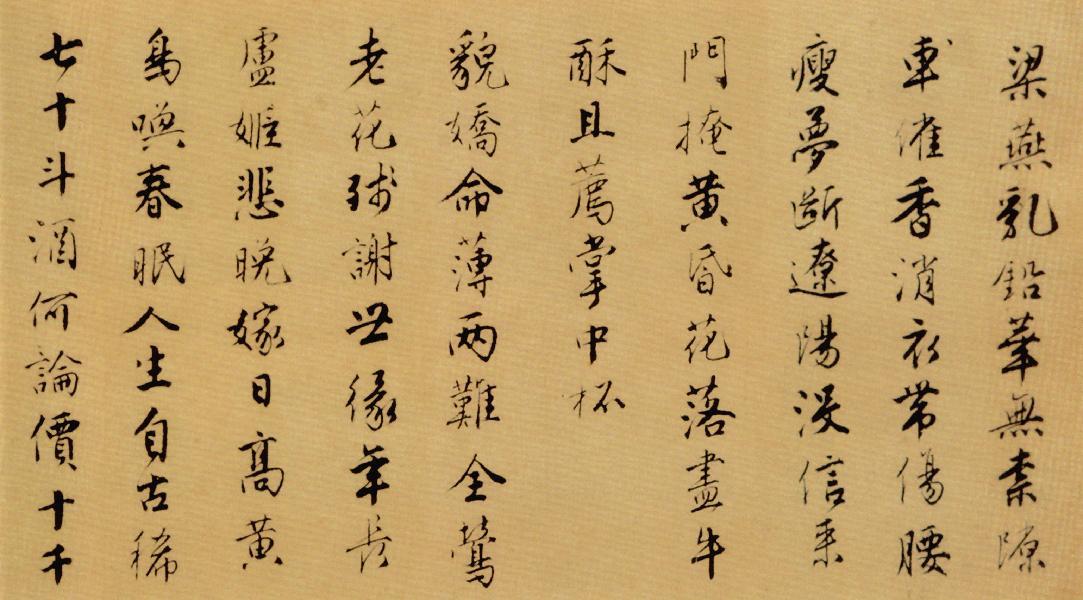 梁燕乳鉛華無素隙
車催香消衣帶傷腰
瘦夢斷遼陽沒信來
門掩黃昏花落盡牛
酥且薦掌中杯
貌嬌命薄兩難全鶯
老花殘謝世緣年長
盧姬悲晚嫁日高黃
鳥喚春眠人生自古稀
七十斗酒何論價十千